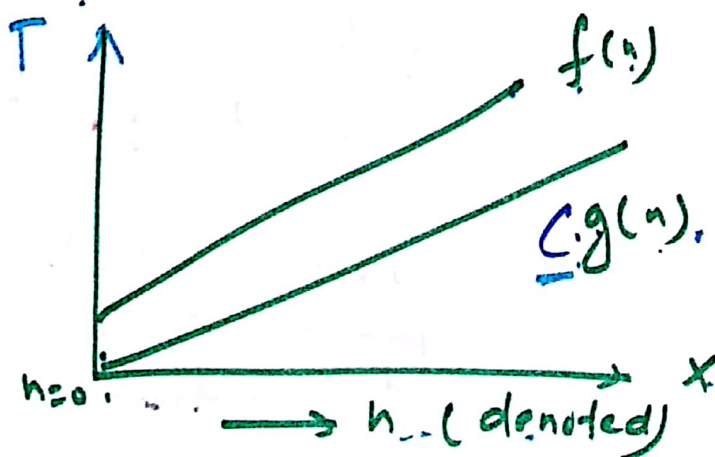 T
f(n)
C.g(n).
n=0
X
→ n..(denoted)